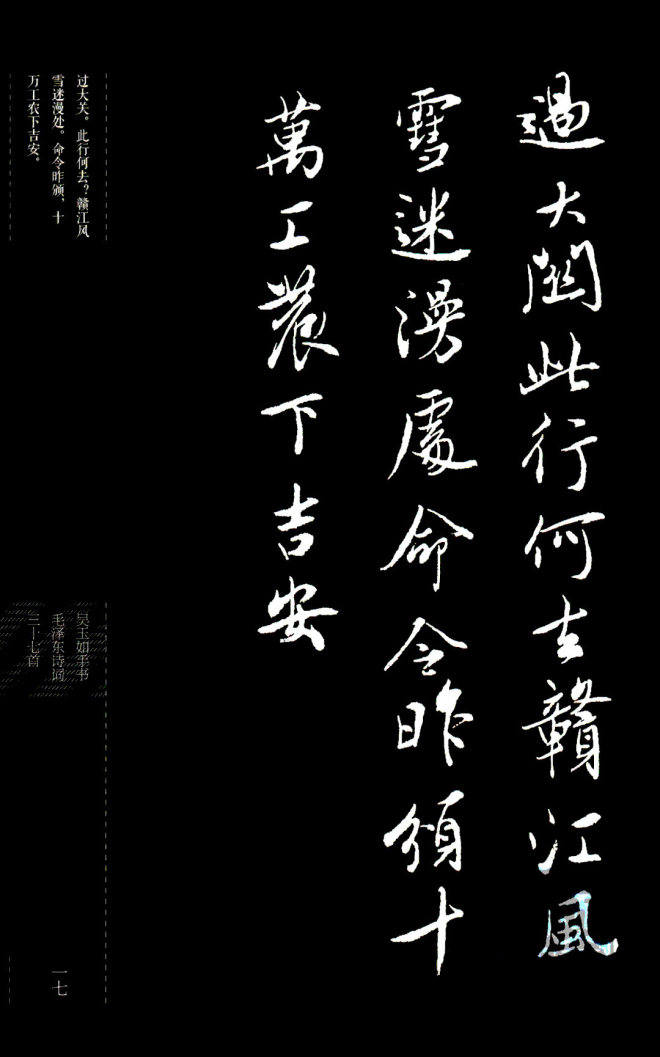 過大關此行何去贛江風
雪迷漫處命令昨頒十
萬工農下吉安
过大关。此行何去？赣江风
雪迷漫处。命令昨颁，十
万工农下吉安。
吴玉如手书
毛泽东诗词
三十七首
一七